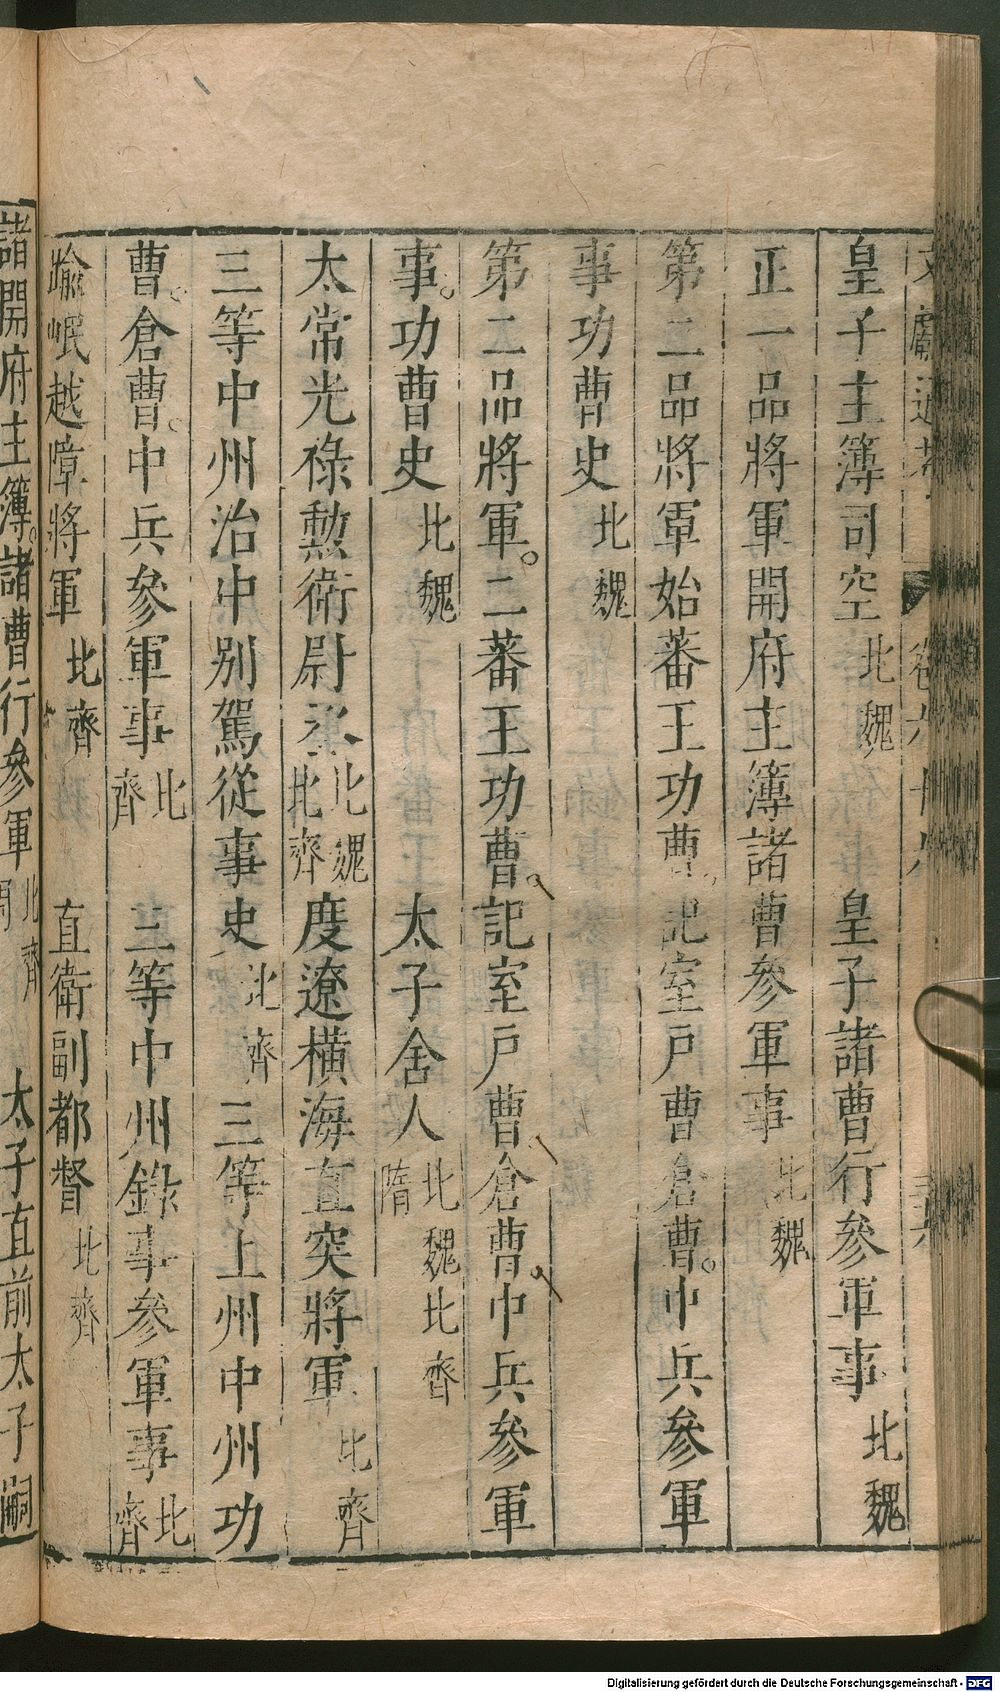 文獻通考 卷六十八
皇子主簿司空北魏 皇子諸曹行參軍事北魏
正一品將軍開府主簿諸曹參軍事北魏
第二品將軍始蕃王功曹記室戶曹倉曹。中兵參軍
事功曹史北魏
第二品將軍。二蕃王功曹。記室戶曹倉曹中兵參軍
事。功曹史北魏 太子舍人北魏北齊隋
太常光祿勲衛尉丞北魏北齊 度遼橫海直突將軍北齊
三等中州治中別駕從事史北齊 三等上州中州功
曹。倉曹。中兵參軍事北齊 三等中州錄事參軍事北齊
踰岷越嶂將軍北齊 直衛副都督北齊
諸開府主簿。諸曹行參軍北齊 太子直前太子嗣
Digitalisierung gefördert durch die Deutsche Forschungsgemeinschaft - DFG